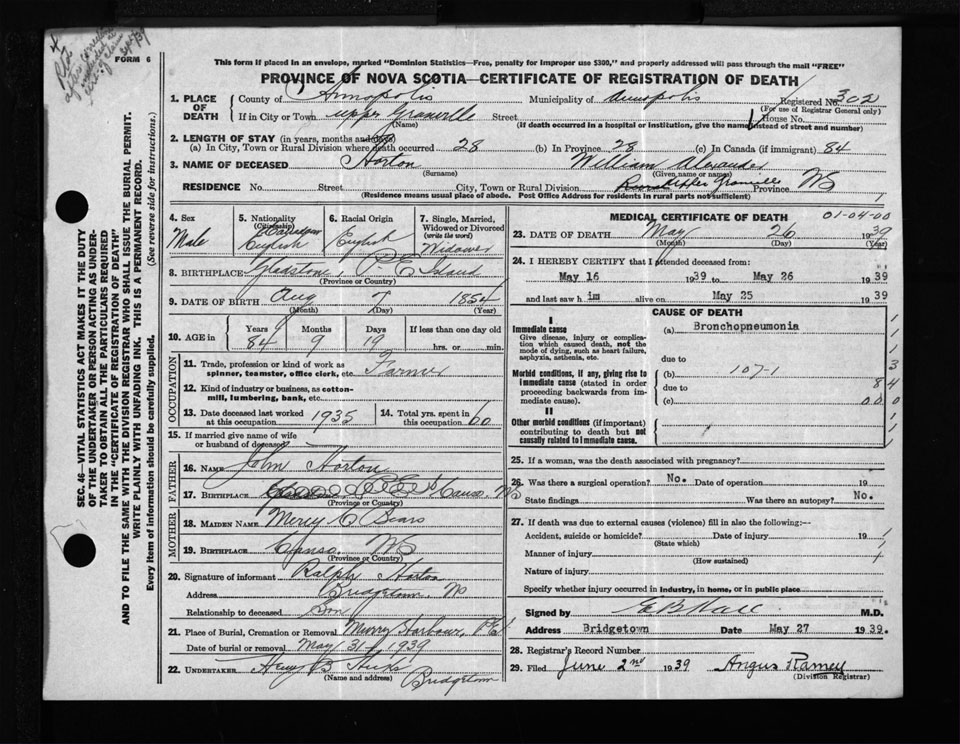 FORM 6
This form if placed in an envelope, marked "Dominion Statistics—Free, penalty for Improper use $300," and properly addressed will pass through the mail "FREE"
PROVINCE OF NOVA SCOTIA—CERTIFICATE OF REGISTRATION OF DEATH
1. PLACE OF DEATH County of Annapolis Municipality of Annapolis Registered No. 302
(For use of Registrar General only)
If in City or Town upper Granville Street House No.
(Name) (If death occurred in a hospital or institution, give the name instead of street and number)
2. LENGTH OF STAY (in years, months and days)
(a) In City, Town or Rural Division where death occurred 28 (b) In Province 28 (c) In Canada (if immigrant) 84
3. NAME OF DECEASED Horton William Alexander
(Surname) (Given name or names)
RESIDENCE No. Street City, Town or Rural Division Upper Granville Province NS
(Residence means usual place of abode. Post Office Address for residents in rural parts not sufficient) 1
4. Sex Male
5. Nationality (Citizenship) Canadian English
6. Racial Origin English
7. Single, Married, Widowed or Divorced (write the word) Widower
8. BIRTHPLACE Gladstone, P. E Island
(Province or Country)
9. DATE OF BIRTH Aug 7 1854
(Month) (Day) (Year)
10. AGE in Years 84 Months 9 Days 19 If less than one day old hrs. or min.
OCCUPATION
11. Trade, profession or kind of work as spinner, teamster, office clerk, etc. Farmer
12. Kind of industry or business, as cotton-mill, lumbering, bank, etc.
13. Date deceased last worked at this occupation 1935
14. Total yrs. spent in this occupation 60
15. If married give name of wife or husband of deceased
FATHER
16. NAME John Horton
17. BIRTHPLACE Canso, NS
(Province or Country)
MOTHER
18. MAIDEN NAME Mercy C Sears
19. BIRTHPLACE Canso, NS
(Province or Country)
20. Signature of informant Ralph Horton
Address Bridgetown, NS
Relationship to deceased Son
21. Place of Burial, Cremation or Removal Murry Harbour, P E I
Date of burial or removal May 31 1939
22. UNDERTAKER Hicks Bridgetown
(Name and address)
MEDICAL CERTIFICATE OF DEATH 01-04-00
23. DATE OF DEATH May 26 1939
(Month) (Day) (Year)
24. I HEREBY CERTIFY that I attended deceased from:
May 16 1939 to May 26 1939
and last saw h im alive on May 25 1939
CAUSE OF DEATH
I
Immediate cause (a) Bronchopneumonia
Give disease, injury or complication which caused death, not the mode of dying, such as heart failure, asphyxia, asthenia, etc.
due to
Morbid conditions, if any, giving rise to immediate cause (stated in order proceeding backwards from immediate cause).
(b) 107-1
due to
(c)
II
Other morbid conditions (if important) contributing to death but not causally related to immediate cause.
25. If a woman, was the death associated with pregnancy?
26. Was there a surgical operation? No. Date of operation 19
State findings Was there an autopsy? No.
27. If death was due to external causes (violence) fill in also the following:—
Accident, suicide or homicide? Date of injury 19
(State which)
Manner of injury
(How sustained)
Nature of injury
Specify whether injury occurred in industry, in home, or in public place
Signed by M.D.
Address Bridgetown Date May 27 1939.
28. Registrar's Record Number
29. Filed June 2nd 1939 Angus Ramey
(Division Registrar)
SEC. 46—VITAL STATISTICS ACT MAKES IT THE DUTY
OF THE UNDERTAKER OR PERSON ACTING AS UNDER-
TAKER TO OBTAIN ALL THE PARTICULARS REQUIRED
IN THE "CERTIFICATE OF REGISTRATION OF DEATH"
AND TO FILE THE SAME WITH THE DIVISION REGISTRAR WHO SHALL ISSUE THE BURIAL PERMIT.
WRITE PLAINLY WITH UNFADING INK. THIS IS A PERMANENT RECORD.
Every item of information should be carefully supplied. (See reverse side for instructions.)